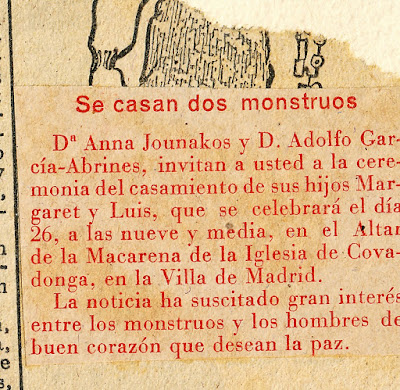 Se casan dos monstruos
Dª Anna Jounakos y D. Adolfo Gar-
cía-Abrines, invitan a usted a la cere-
monia del casamiento de sus hijos Mar-
garet y Luis, que se celebrará el día
26, a las nueve y media, en el Altar
de la Macarena de la Iglesia de Cova-
donga, en la Villa de Madrid.
La noticia ha suscitado gran interés
entre los monstruos y los hombres de
buen corazón que desean la paz.